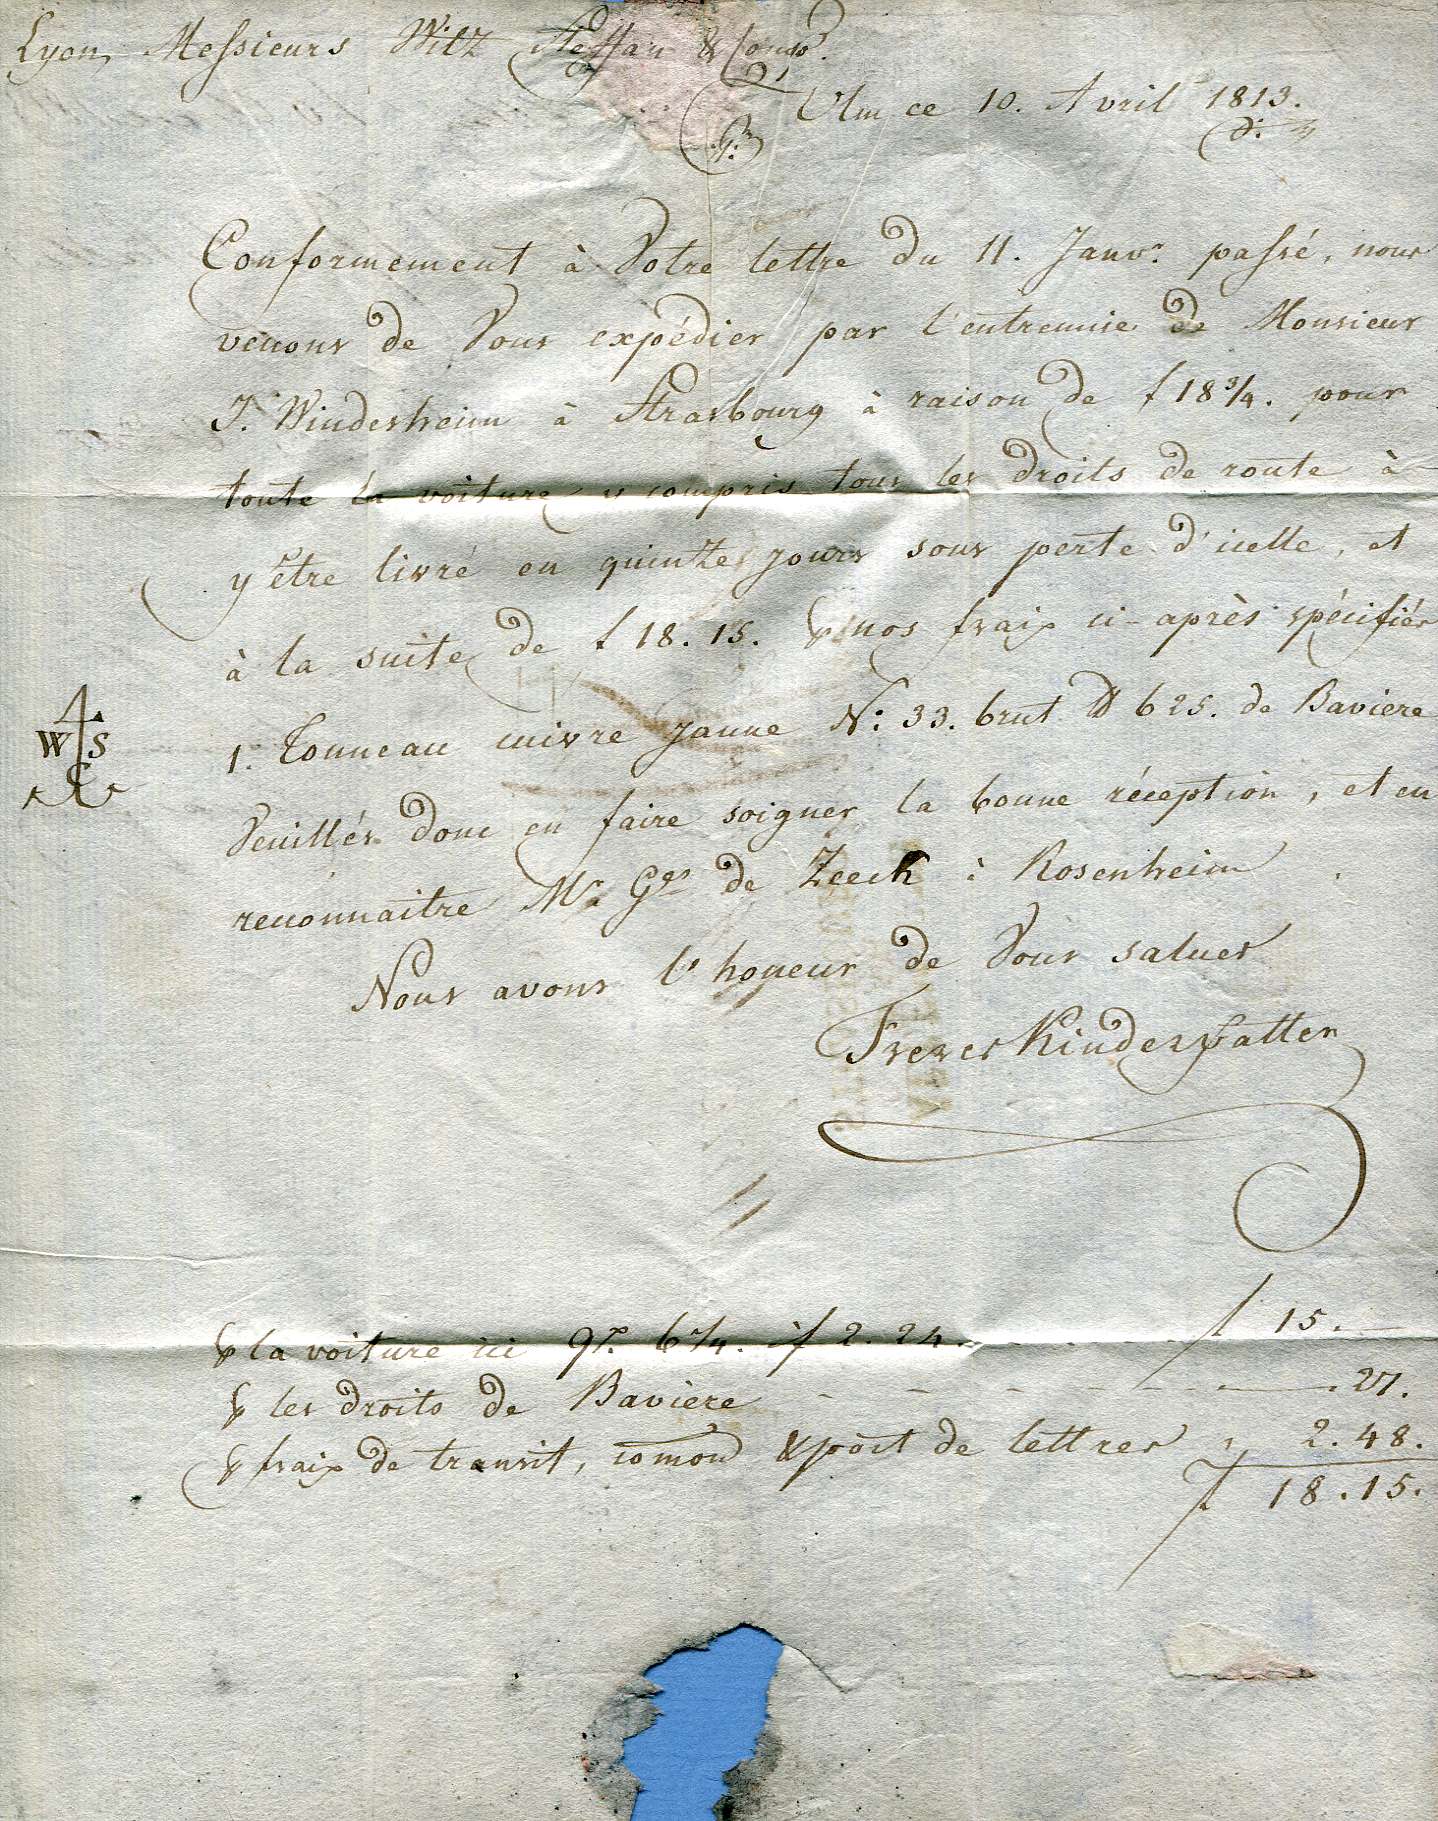 Lyon, Messieurs Witz Steffan & Comp.
Ulm ce 10. Avril 1813.
Conformement à Votre lettre du 11. Janvr. passé, nous
venons de Vous expédier par l'entremie de Monsieur
J. Windesheim à Strasbourg à raison de f 18 3/4. pour
toute la voiture y compris tous les droits de route à
y être livré en quinze jours sous perte d'icelle, et
à la suite de f 18. 15. pr nos fraix ci-après spécifiés
W S
C
1. Tonneau cuivre jaune N: 33. brut ℔ 625. de Baviere
Veuillés donc en faire soigner la bonne réception, et en
reconnaitre Mr. Ges de Zeech à Rosenheim
Nous avons l'honeur de Vous saluer
Freres Kindervatter
pr la voiture ici 6 1/4. à f 2. 24. f 15. —
pr les droits de Baviere - - - - - - — . 27.
pr fraix de transit, comon & port de lettres " 2. 48.
f 18. 15.